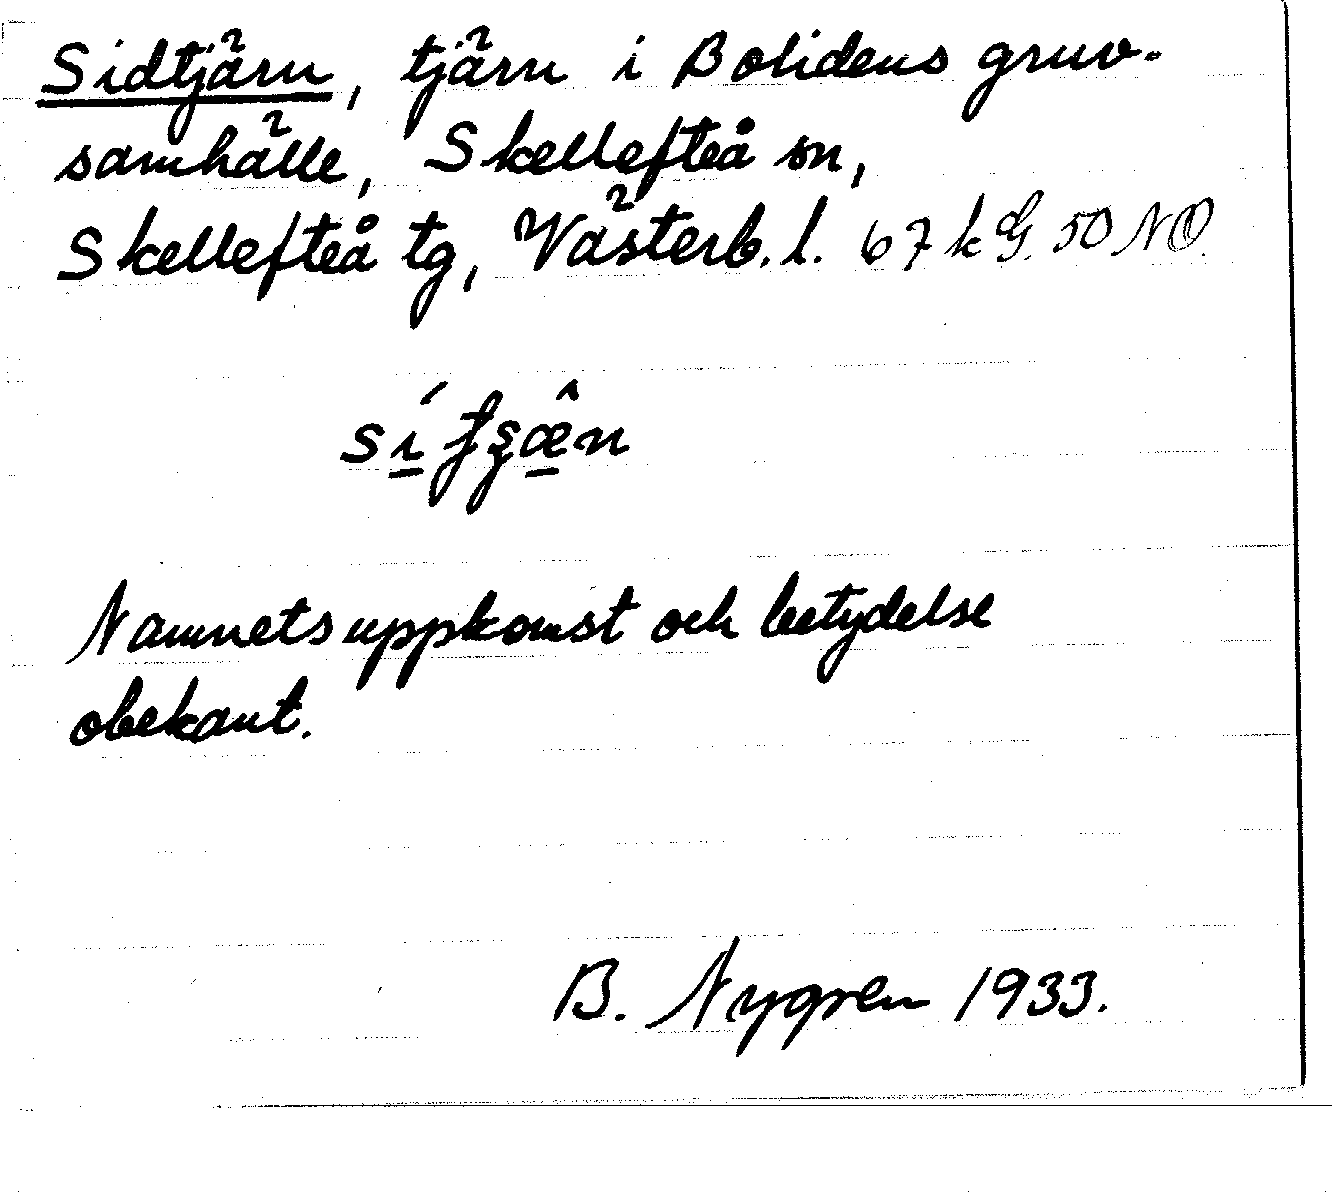 Sidtjärn, tjärn i Bolidens gruv-
samhälle, Skellefteå sn,
Skellefteå tg, Västerb. l. 67 k G. 50 NO
Namnets uppkomst och betydelse
obekant.
B. Nygren 1933.